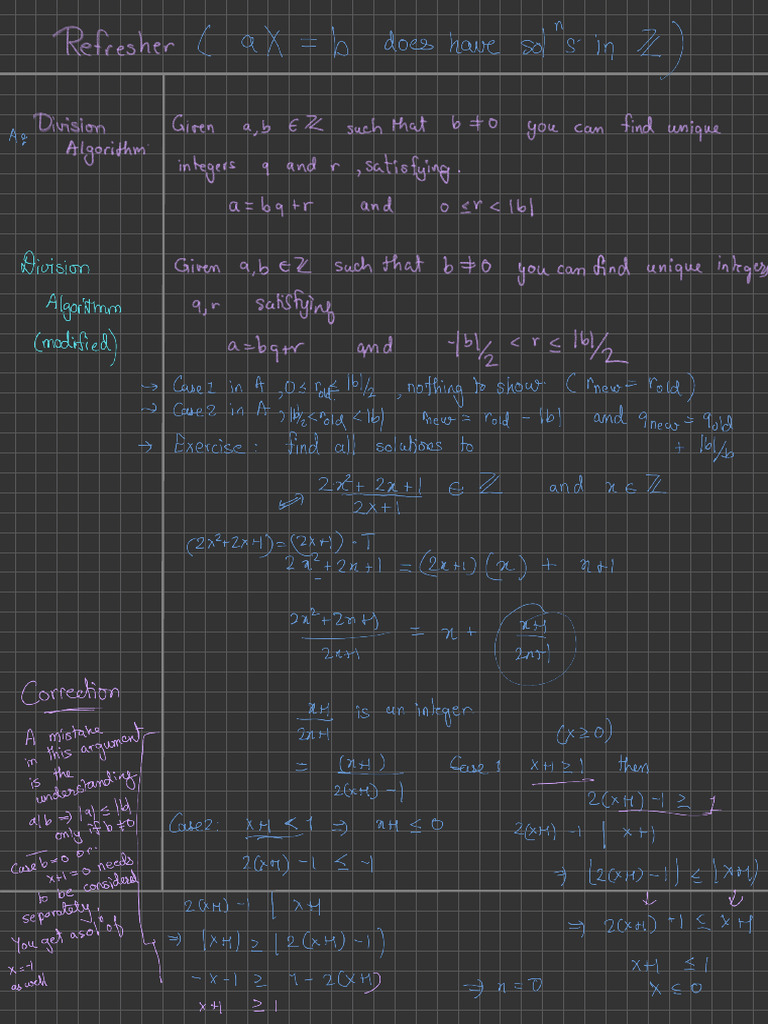 Refresher ( aX = b does have solⁿs in ℤ )
A:
Division
Algorithm
Given a,b ∈ ℤ such that b ≠ 0 you can find unique
integers q and r , satisfying.
a = bq + r and 0 ≤ r < |b|
Division
Algorithm
(modified)
Given a,b ∈ ℤ such that b ≠ 0 you can find unique integers
q, r satisfying
a = bq + r and -|b|/2 < r ≤ |b|/2
→ Case 1 in A , 0 ≤ r_old ≤ |b|/2 , nothing to show. ( r_new = r_old )
→ Case 2 in A , |b|/2 < r_old < |b| r_new = r_old - |b| and q_new = q_old + |b|/b
→ Exercise : find all solutions to
(2x² + 2x + 1)/(2x + 1) ∈ ℤ and x ∈ ℤ
(2x² + 2x + 1) = (2x + 1) · T
2x² + 2x + 1 = (2x + 1) (x) + x + 1
(2x² + 2x + 1)/(2x + 1) = x + (x + 1)/(2x + 1)
(x + 1)/(2x + 1) is an integer
= (x + 1)/(2(x + 1) - 1)
(x ≥ 0)
Case 1 x + 1 ≥ 1 then
2(x + 1) - 1 ≥ 1
2(x + 1) - 1 | x + 1
⇒ |2(x + 1) - 1| ≤ |x + 1|
⇒ 2(x + 1) + 1 ≤ x + 1
x + 1 ≤ 1
x ≤ 0
⇒ x = 0
Case 2: x + 1 < 1 ⇒ x + 1 ≤ 0
2(x + 1) - 1 ≤ -1
2(x + 1) - 1 | x + 1
⇒ |x + 1| ≥ |2(x + 1) - 1|
-x - 1 ≥ 1 - 2(x + 1)
x + 1 ≥ 1
Correction
A mistake
in this argument
is the
understanding
a|b ⇒ |a| ≤ |b|
only if b ≠ 0
Case b = 0 or
x + 1 = 0 needs
to be considered
separately.
You get a solⁿ of
x = -1
as well